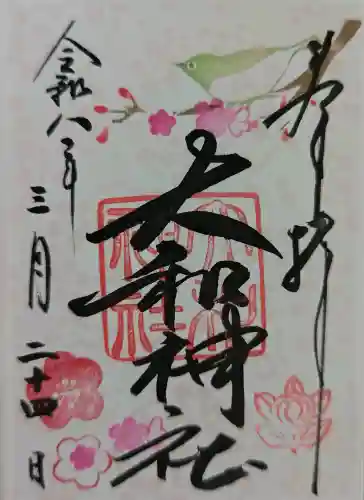 奉拝
大和神社
令和八年
三月
二十四日